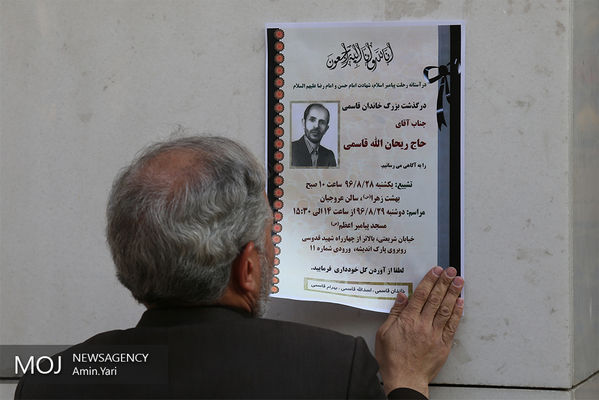 انا لله و انا الیه راجعون
در آستانه رحلت پیامبر اسلام، شهادت امام حسن و امام رضا علیهم السلام
درگذشت بزرگ خاندان قاسمی
جناب آقای
حاج ریحان الله قاسمی
را به آگاهی می رسانیم.
تشییع: یکشنبه ۹۶/۸/۲۸ ساعت ۱۰ صبح
بهشت زهرا(س)، سالن عروجیان
مراسم: دوشنبه ۹۶/۸/۲۹ از ساعت ۱۴ الی ۱۵:۳۰
مسجد پیامبر اعظم(ص)
خیابان شریعتی، بالاتر از چهارراه شهید قدوسی
روبروی پارک اندیشه، ورودی شماره ۱۱
لطفا از آوردن گل خودداری فرمایید.
خاندان قاسمی، اسدالله قاسمی، بهرام قاسمی
MOJ NEWSAGENCY
Amin.Yari